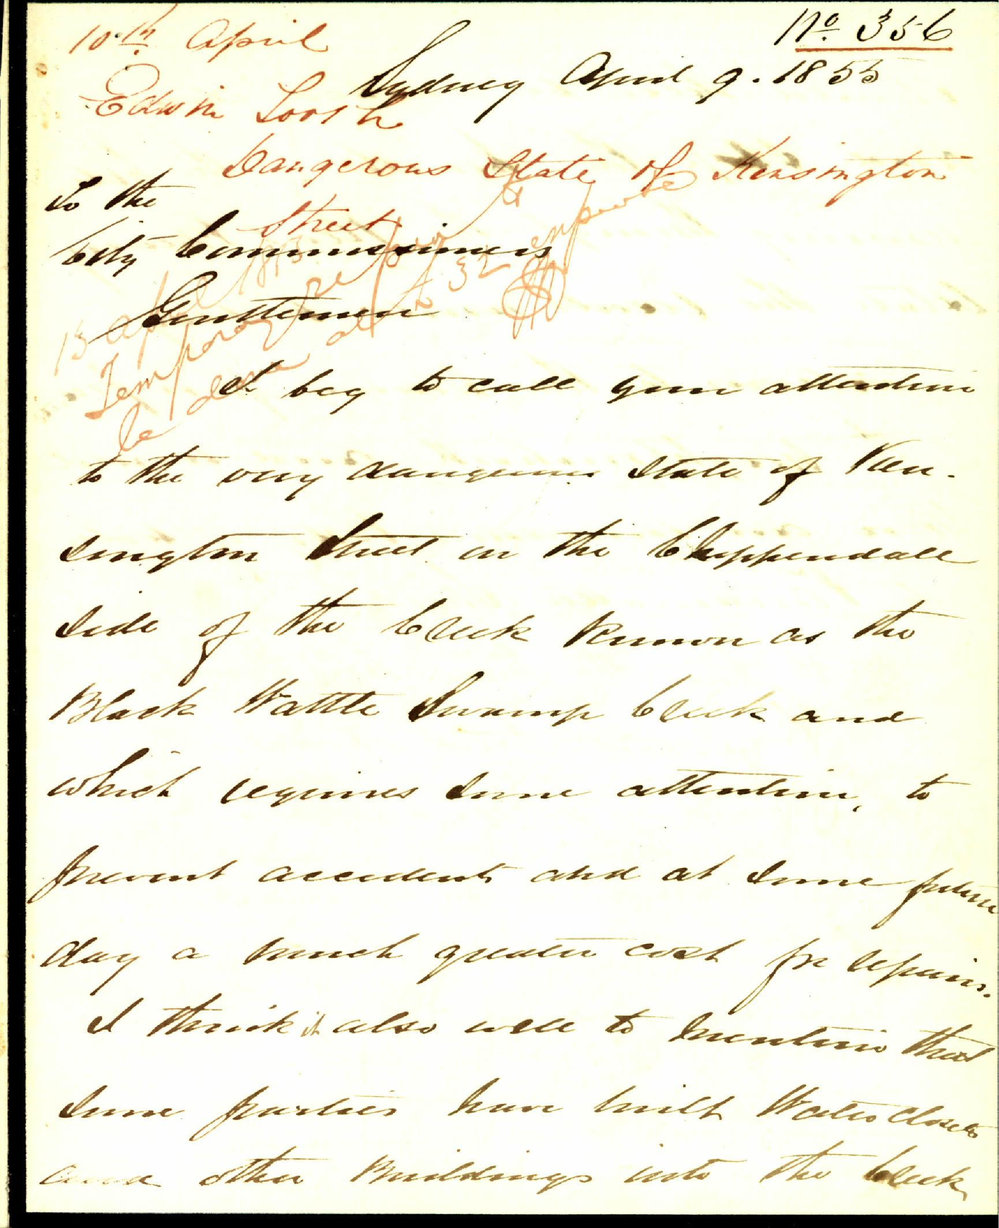 No. 356
10th April
Sydney April 9. 1855
Edwin Tooth
Dangerous State of Kensington
Street
To the
City Commissioners
Gentlemen
13 April 1855
Temporary repair to
be done at £32 expense
I beg to call your attention
to the very dangerous state of Ken-
sington Street on the Chippendale
side of the Creek known as the
Black Wattle Swamp Creek and
which requires some attention, to
prevent accidents and at some future
day a much greater cost for repairs.
I think it also well to mention that
some parties have built Water Closets
and other Buildings into the Creek